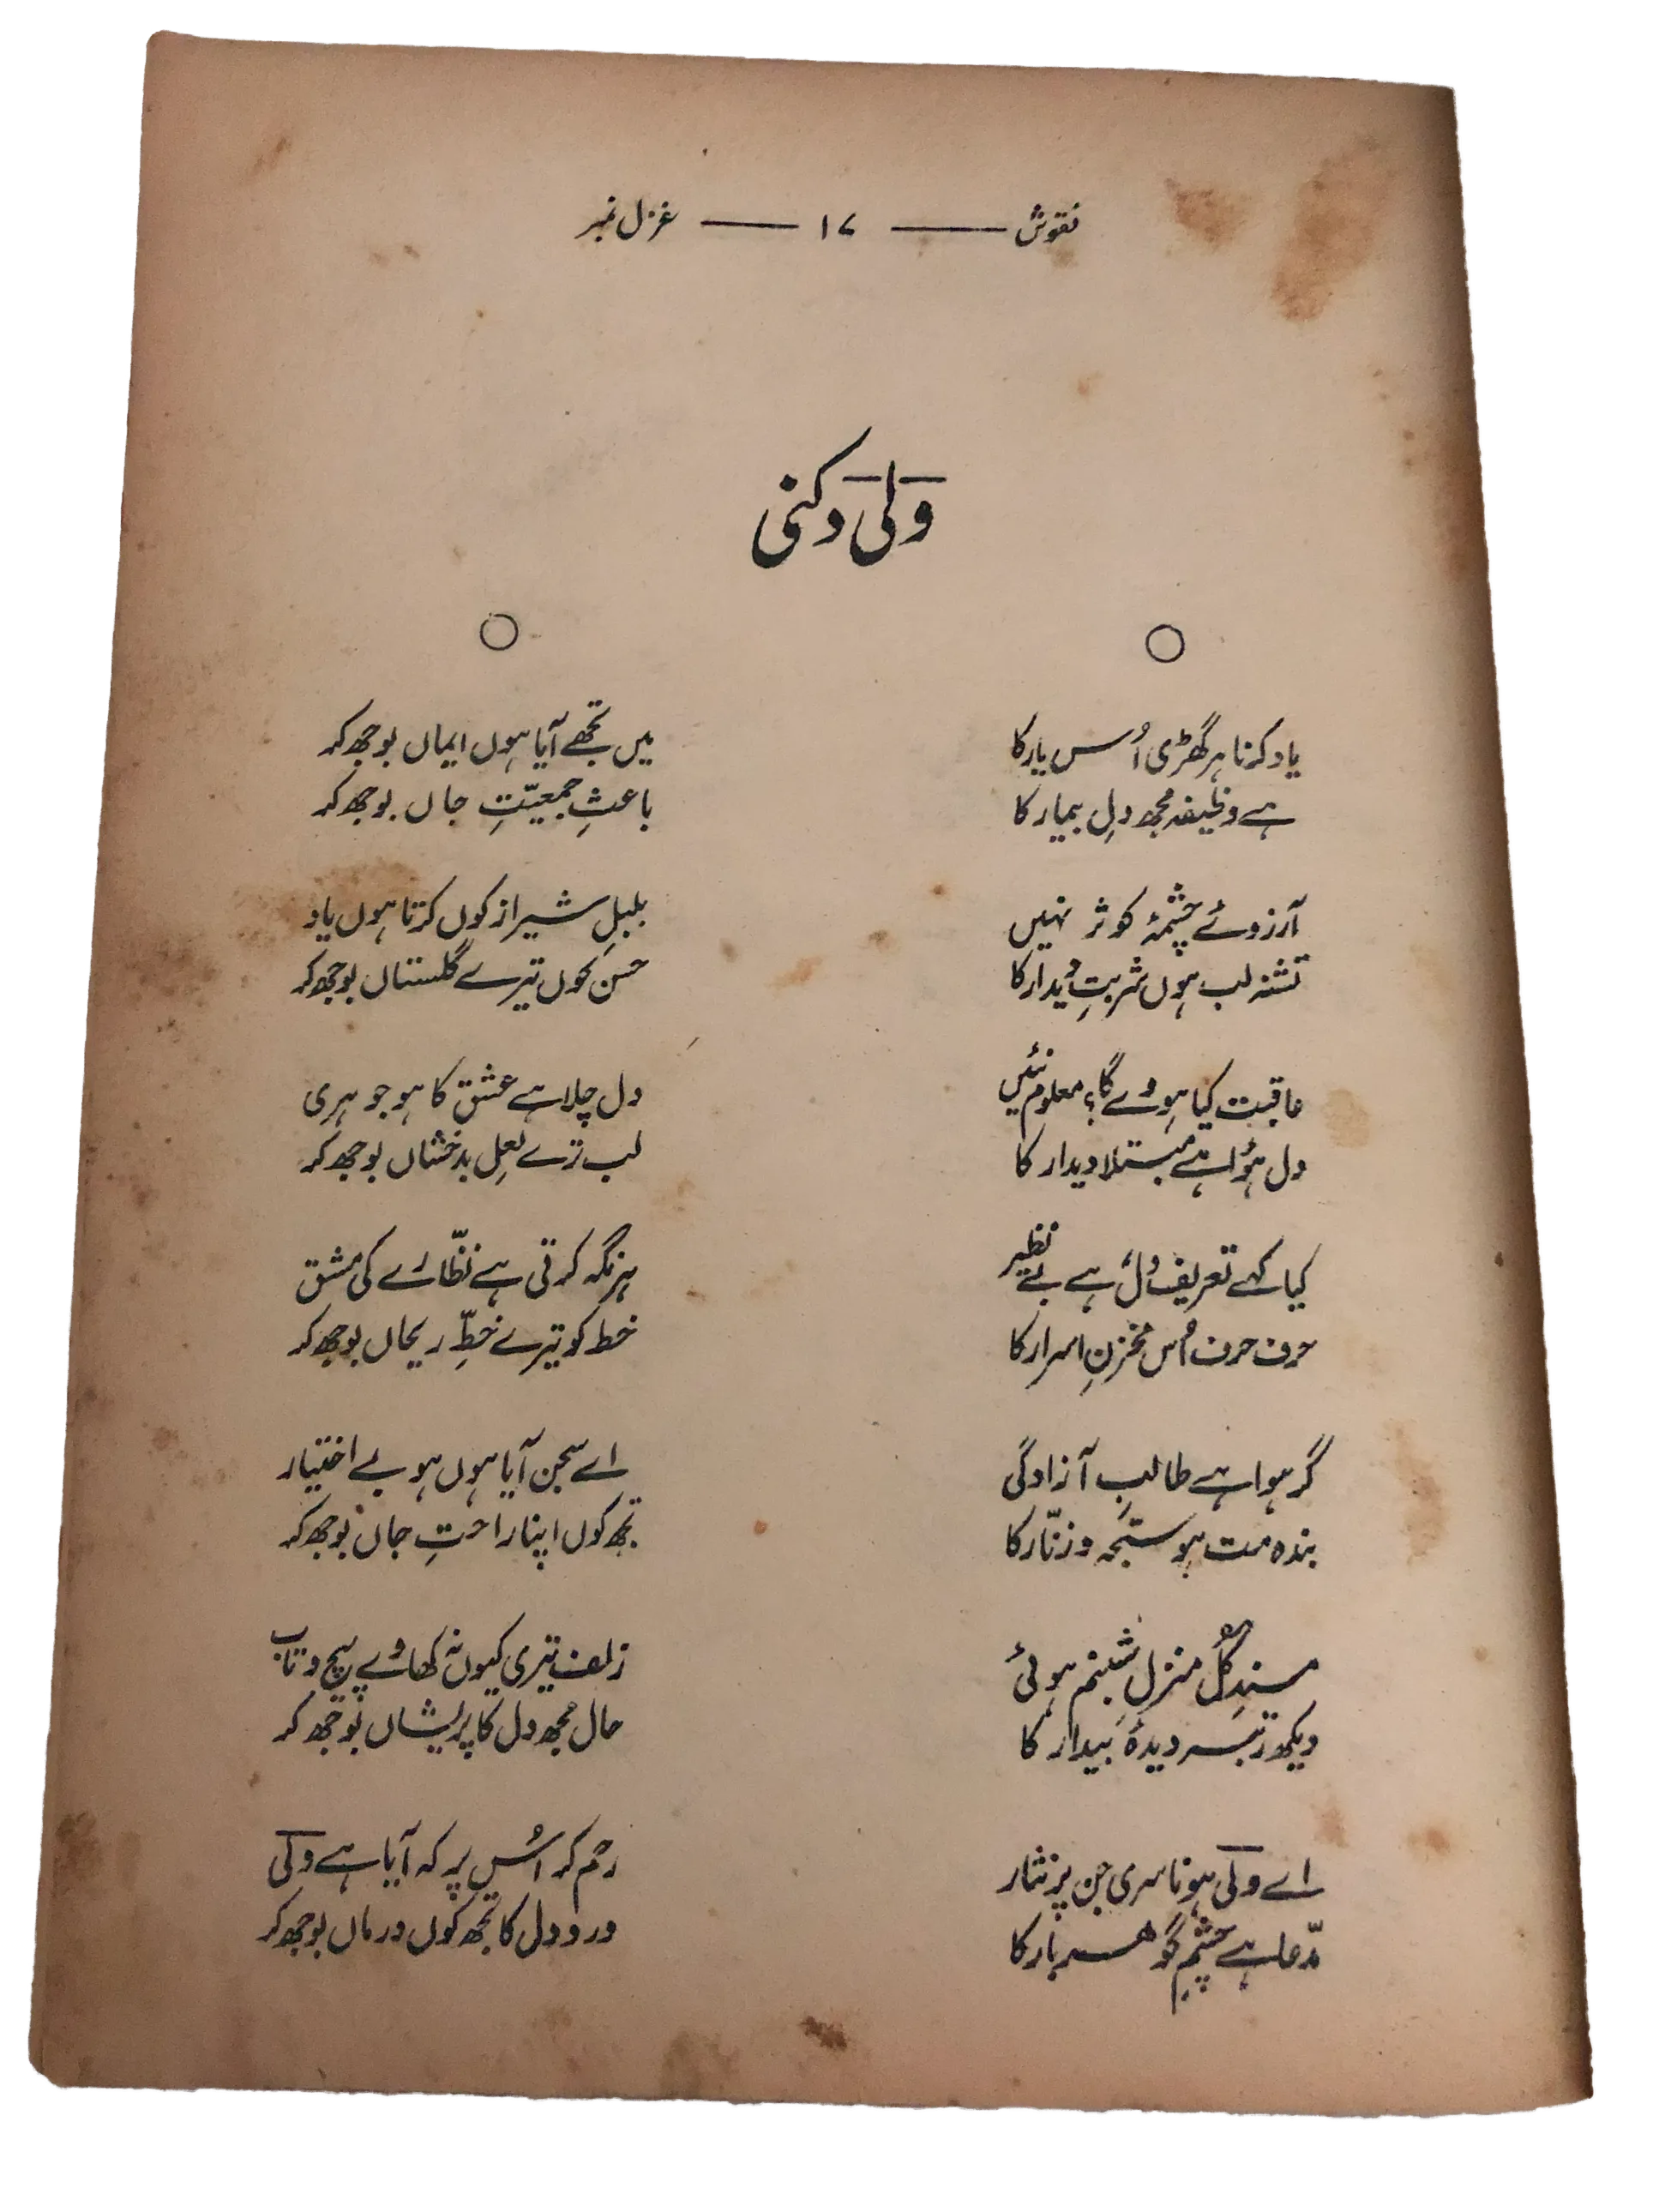 نقوش ——— ۱۷ ——— غزل نمبر
ولی دکنی
یاد کرنا ہر گھڑی اُس یار کا
ہے وظیفہ مجھ دلِ بیمار کا
آرزوئے چشمۂ کوثر نہیں
تشنہ لب ہوں شربتِ دیدار کا
عاقبت کیا ہووے گا؟ معلوم نئیں
دل ہؤا ہے مبتلا دیدار کا
کیا کہے تعریف دل، ہے بے نظیر
حرف حرف اُس مخزنِ اسرار کا
گر ہوا ہے طالبِ آزادگی
بندہ مت ہو سبحہ و زنّار کا
مسندِ گل منزلِ شبنم ہوئی
دیکھ رتبہ دیدۂ بیدار کا
اے ولی ہونا سری جن پر نثار
مدّعا ہے چشمِ گوہر بار کا
میں تجھے آیا ہوں ایماں بوجھ کر
باعثِ جمعیّتِ جاں بوجھ کر
بلبلِ شیراز کوں کرتا ہوں یاد
حسن کوں تیرے گلستاں بوجھ کر
دل چلا ہے عشق کا ہو جوہری
لب ترے لعلِ بدخشاں بوجھ کر
ہر نگہ کرتی ہے نظّارے کی مشق
خط کو تیرے خطِّ ریحاں بوجھ کر
اے سجن آیا ہوں ہو بے اختیار
تجھ کوں اپنا راحتِ جاں بوجھ کر
زلف تیری کیوں نہ کھاوے پیچ و تاب
حال مجھ دل کا پریشاں بوجھ کر
رحم کر اُس پر کہ آیا ہے ولی
درد دل کا تجھ کوں درماں بوجھ کر